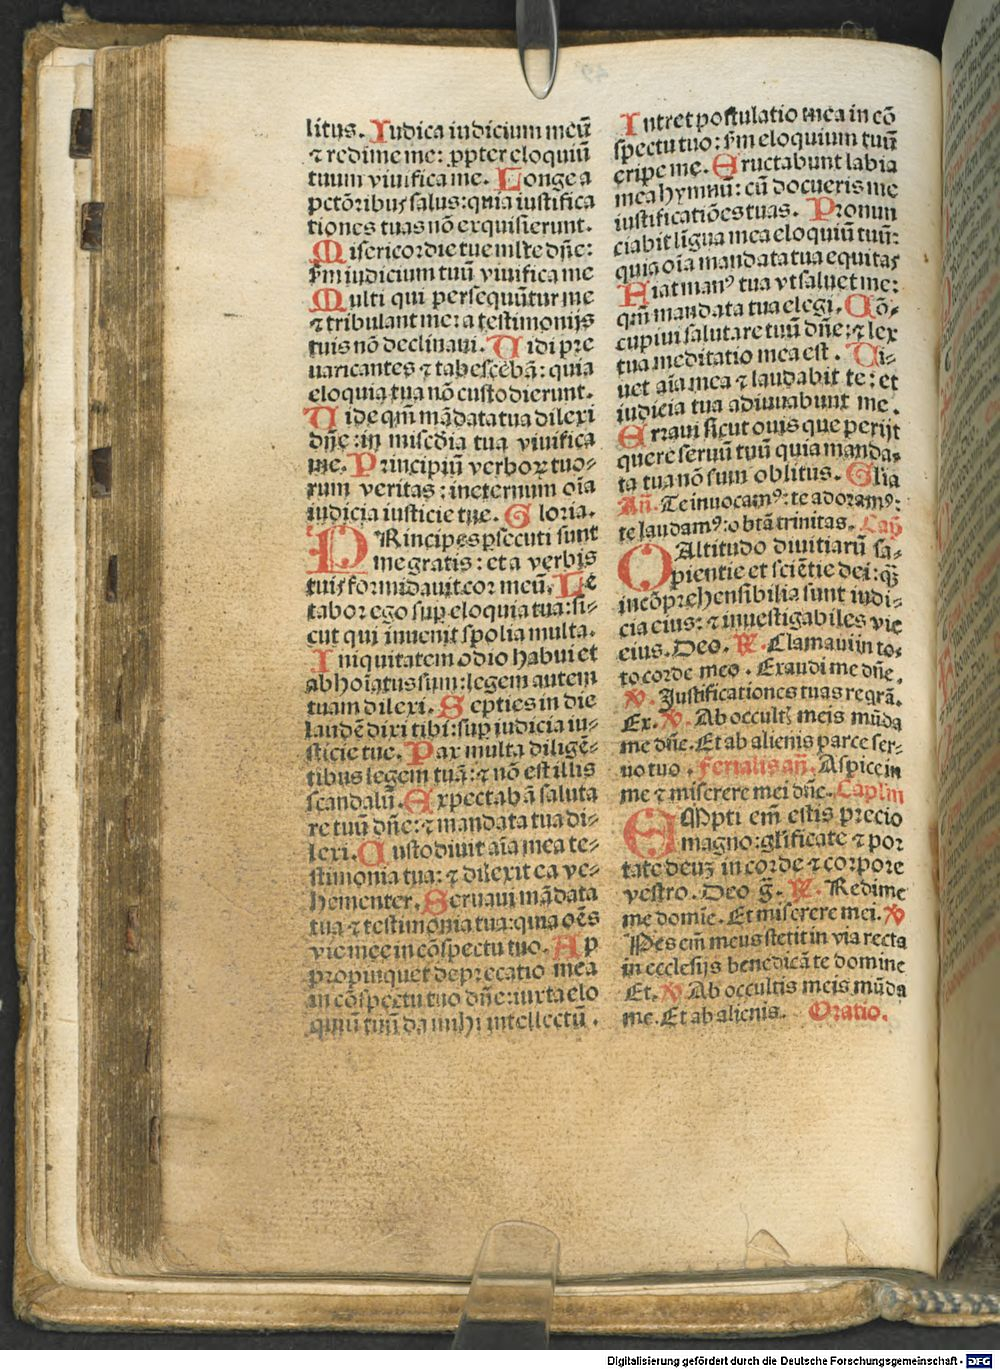 litus. Iudica iudicium meū
⁊ redime me: ꝓpter eloquiū
tuum viuifica me. Longe a
pctōribus salus: quia iustifica
tiones tuas nō exquisierunt.
Misericordie tue mlte dn̄e:
s̄m iudicium tuū viuifica me
Multi qui persequūtur me
⁊ tribulant me: a testimonijs
tuis nō declinaui. Uidi pre
uaricantes ⁊ tabescēbā: quia
eloquia tua nō custodierunt.
Uide qm̄ mādata tua dilexi
dn̄e: in miscd̄ia tua viuifica
me. Principiū verboꝝ tuo-
rum veritas: in eternum oīa
iudicia iusticie tue. Gloria.
PRincipes ꝑsecuti sunt
me gratis: et a verbis
tuis formidauit cor meū. Le
tabor ego suꝑ eloquia tua: si-
cut qui inuenit spolia multa.
Iniquitatem odio habui et
abhoīatus sum: legem autem
tuam dilexi. Septies in die
laudē dixi tibi: suꝑ iudicia iu-
sticie tue. Pax multa diligē-
tibus legem tuā: ⁊ nō est illis
scandalū. Expectabā saluta
re tuū dn̄e: ⁊ mandata tua di-
lexi. Custodiuit aīa mea te-
stimonia tua: ⁊ dilexit ea ve-
hementer. Seruaui mādata
tua ⁊ testimonia tua: quia oēs
vie mee in cōspectu tuo. Ap
propinquet deprecatio mea
in cōspectu tuo dn̄e: iuxta elo
quiū tuū da mihi intellectū.
Intret postulatio mea in cō
spectu tuo: s̄m eloquium tuū
eripe me. Eructabunt labia
mea hymnū: cū docueris me
iustificatiōes tuas. Pronun
ciabit līgua mea eloquiū tuū:
quia oīa mandata tua equitas
Fiat manꝰ tua vt saluet me:
qm̄ mandata tua elegi. Cō-
cupiui salutare tuū dn̄e: ⁊ lex
tua meditatio mea est. Ui-
uet aīa mea ⁊ laudabit te: et
iudicia tua adiuuabunt me.
Erraui sicut ouis que perijt
quere seruū tuū quia manda-
ta tua nō sum oblitus. Glīa
An̄. Te inuocamꝰ: te adoramꝰ:
te laudamꝰ: o btā trinitas. Cap̄
OAltitudo diuitiarū sa-
pientie et sciētie dei: qꝫ
incōprehensibilia sunt iudi-
cia eius: ⁊ inuestigabiles vie
eius. Deo. ℟. Clamaui in to-
to corde meo. Exaudi me dn̄e.
℣. Iustificationes tuas reqrā.
Ex. ℣. Ab occultꝭ meis mūda
me dn̄e. Et ab alienis parce ser-
uo tuo. Ferialis an̄. Aspice in
me ⁊ miserere mei dn̄e. Caplm̄
EMpti em̄ estis precio
magno: glīficate ⁊ por
tate deuꝫ in corde ⁊ corpore
vestro. Deo ḡ. ℟. Redime
me domīe. Et miserere mei. ℣
Pes em̄ meus stetit in via recta
in ecclesijs benedicā te domine
Et. ℣ Ab occultis meis mūda
me. Et ab alienis. Oratio.
Digitalisierung gefördert durch die Deutsche Forschungsgemeinschaft - DFG